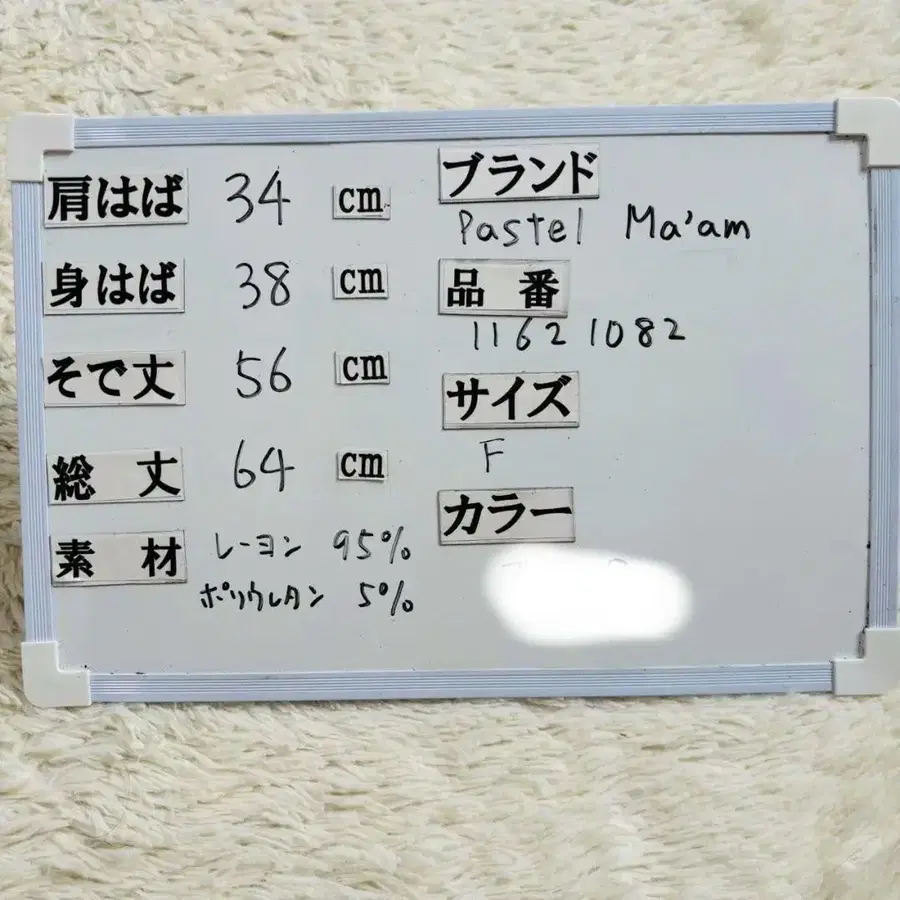 肩はば 34 cm
身はば 38 cm
そで丈 56 cm
総 丈 64 cm
素 材 レーヨン 95%
ポリウレタン 5%
ブランド
Pastel Ma'am
品 番
11621082
サイズ
F
カラー